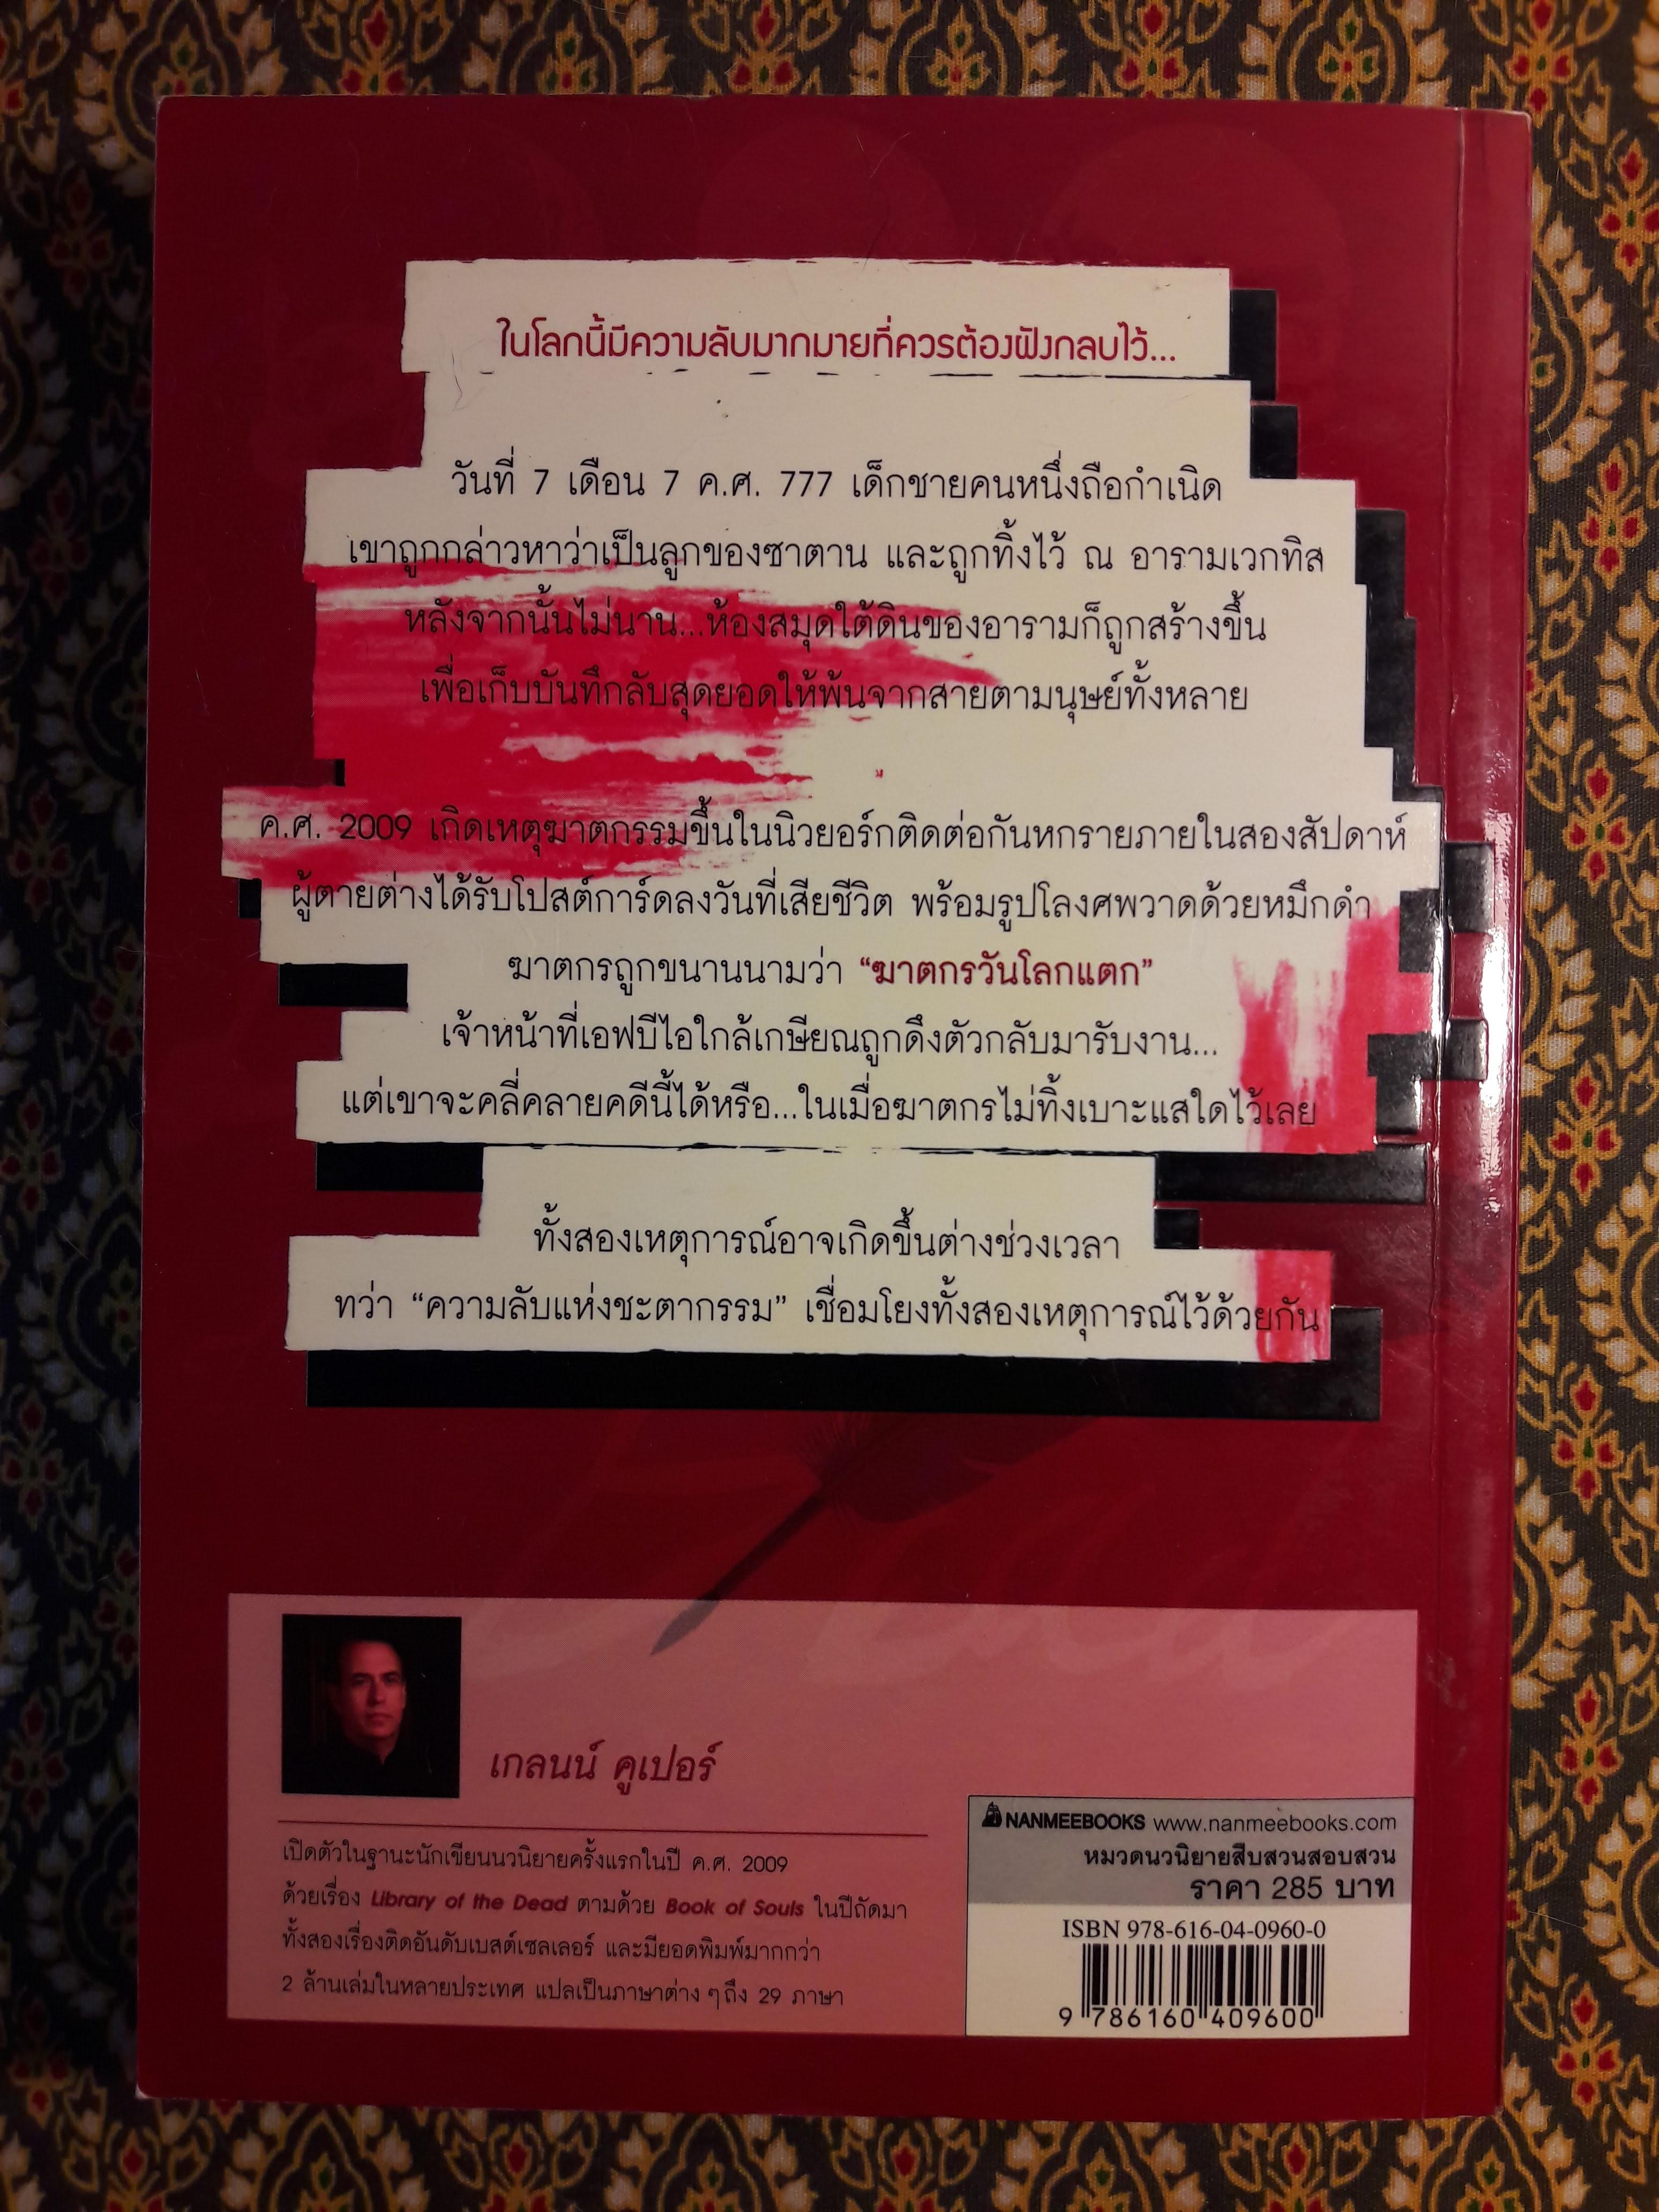 ในโลกนี้มีความลับมากมายที่ควรต้องฝังกลบไว้...
วันที่ 7 เดือน 7 ค.ศ. 777 เด็กชายคนหนึ่งถือกำเนิด
เขาถูกกล่าวหาว่าเป็นลูกของซาตาน และถูกทิ้งไว้ ณ อารามเวกทิส
หลังจากนั้นไม่นาน...ห้องสมุดใต้ดินของอารามก็ถูกสร้างขึ้น
เพื่อเก็บบันทึกลับสุดยอดให้พ้นจากสายตามนุษย์ทั้งหลาย
ค.ศ. 2009 เกิดเหตุฆาตกรรมขึ้นในนิวยอร์กติดต่อกันหกรายภายในสองสัปดาห์
ผู้ตายต่างได้รับโปสต์การ์ดลงวันที่เสียชีวิต พร้อมรูปโลงศพวาดด้วยหมึกดำ
ฆาตกรถูกขนานนามว่า “ฆาตกรวันโลกแตก”
เจ้าหน้าที่เอฟบีไอใกล้เกษียณถูกดึงตัวกลับมารับงาน...
แต่เขาจะคลี่คลายคดีนี้ได้หรือ...ในเมื่อฆาตกรไม่ทิ้งเบาะแสใดไว้เลย
ทั้งสองเหตุการณ์อาจเกิดขึ้นต่างช่วงเวลา
ทว่า “ความลับแห่งชะตากรรม” เชื่อมโยงทั้งสองเหตุการณ์ไว้ด้วยกัน
เกลนน์ คูเปอร์
เปิดตัวในฐานะนักเขียนนวนิยายครั้งแรกในปี ค.ศ. 2009
ด้วยเรื่อง Library of the Dead ตามด้วย Book of Souls ในปีถัดมา
ทั้งสองเรื่องติดอันดับเบสต์เซลเลอร์ และมียอดพิมพ์มากกว่า
2 ล้านเล่มในหลายประเทศ แปลเป็นภาษาต่าง ๆ ถึง 29 ภาษา
NANMEEBOOKS www.nanmeebooks.com
หมวดนวนิยายสืบสวนสอบสวน
ราคา 285 บาท
ISBN 978-616-04-0960-0
9 786160 409600